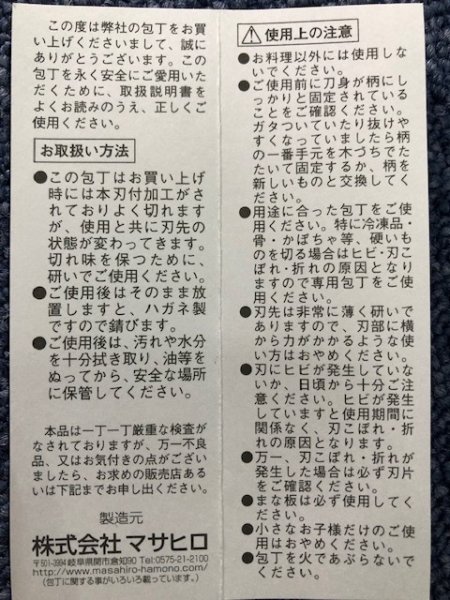 この度は弊社の包丁をお買
い上げくださいまして、誠に
ありがとうございます。この
包丁を永く安全にご愛用いた
だくために、取扱説明書を
よくお読みのうえ、正しくご
使用ください。
お取扱い方法
●この包丁はお買い上げ
時には本刃付加工がさ
れておりよく切れます
が、使用と共に刃先の
状態が変わってきます。
切れ味を保つために、
研いでご使用ください。
●ご使用後はそのまま放
置しますと、ハガネ製
ですので錆びます。
●ご使用後は、汚れや水分
を十分拭き取り、油等を
ぬってから、安全な場所
に保管してください。
本品は一丁一丁厳重な検査が
なされておりますが、万一不良
品、又はお気付きの点がござい
ましたら、お求めの販売店ある
いは下記までお申し出ください。
製造元
株式会社 マサヒロ
〒501-3984岐阜県関市倉知90 Tel.0575-21-2100
http://www.masahiro-hamono.com/
(包丁に関する事がいろいろ載っています。)
使用上の注意
●お料理以外には使用しな
いでください。
●ご使用前に刀身が柄にし
っかりと固定されている
ことをご確認ください。
ガタついていたり抜けや
すくなっていましたら柄
の一番手元を木づちでた
たいて固定するか、柄を
新しいものと交換してく
ださい。
●用途に合った包丁をご使
用ください。特に冷凍品・
骨・かぼちゃ等、硬いも
のを切る場合はヒビ・刃こ
ぼれ・折れの原因となり
ますので専用包丁をご使
用ください。
●刃先は非常に薄く研いで
ありますので、刃部に横
から力がかかるような使
い方はおやめください。
●刃にヒビが発生していな
いか、日頃から十分ご注
意ください。ヒビが発生
していますと使用期間に
関係なく、刃こぼれ・折
れの原因となります。
●万一、刃こぼれ・折れが
発生した場合は必ず刃片
をご確認ください。
●まな板は必ず使用してく
ださい。
●小さなお子様だけのご使
用はおやめください。
●包丁を火であぶらないで
ください。